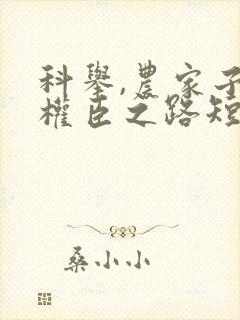 科舉,農家子
權臣之路短
桑小小